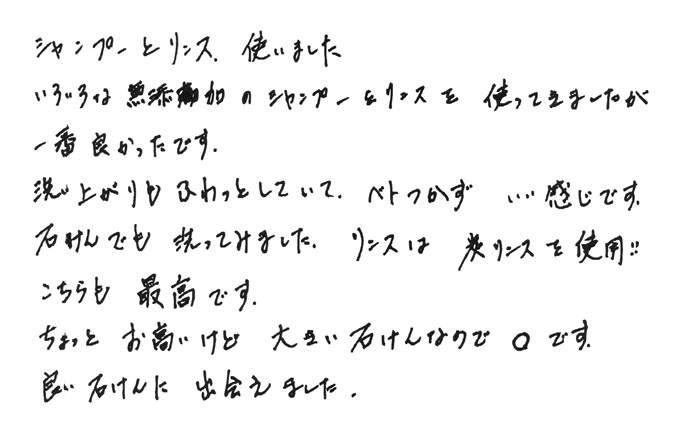 シャンプーとリンス、使いました
いろいろな無添加のシャンプーとリンスを 使ってきましたが
一番良かったです。
洗い上がりもふわっとしていて、ベトつかず いい感じです。
石けんでも 洗ってみました。リンスは 炭リンスを使用!!
こちらも 最高です。
ちょっと お高いけど 大きい石けんなので ○です。
良い石けんに 出会えました。